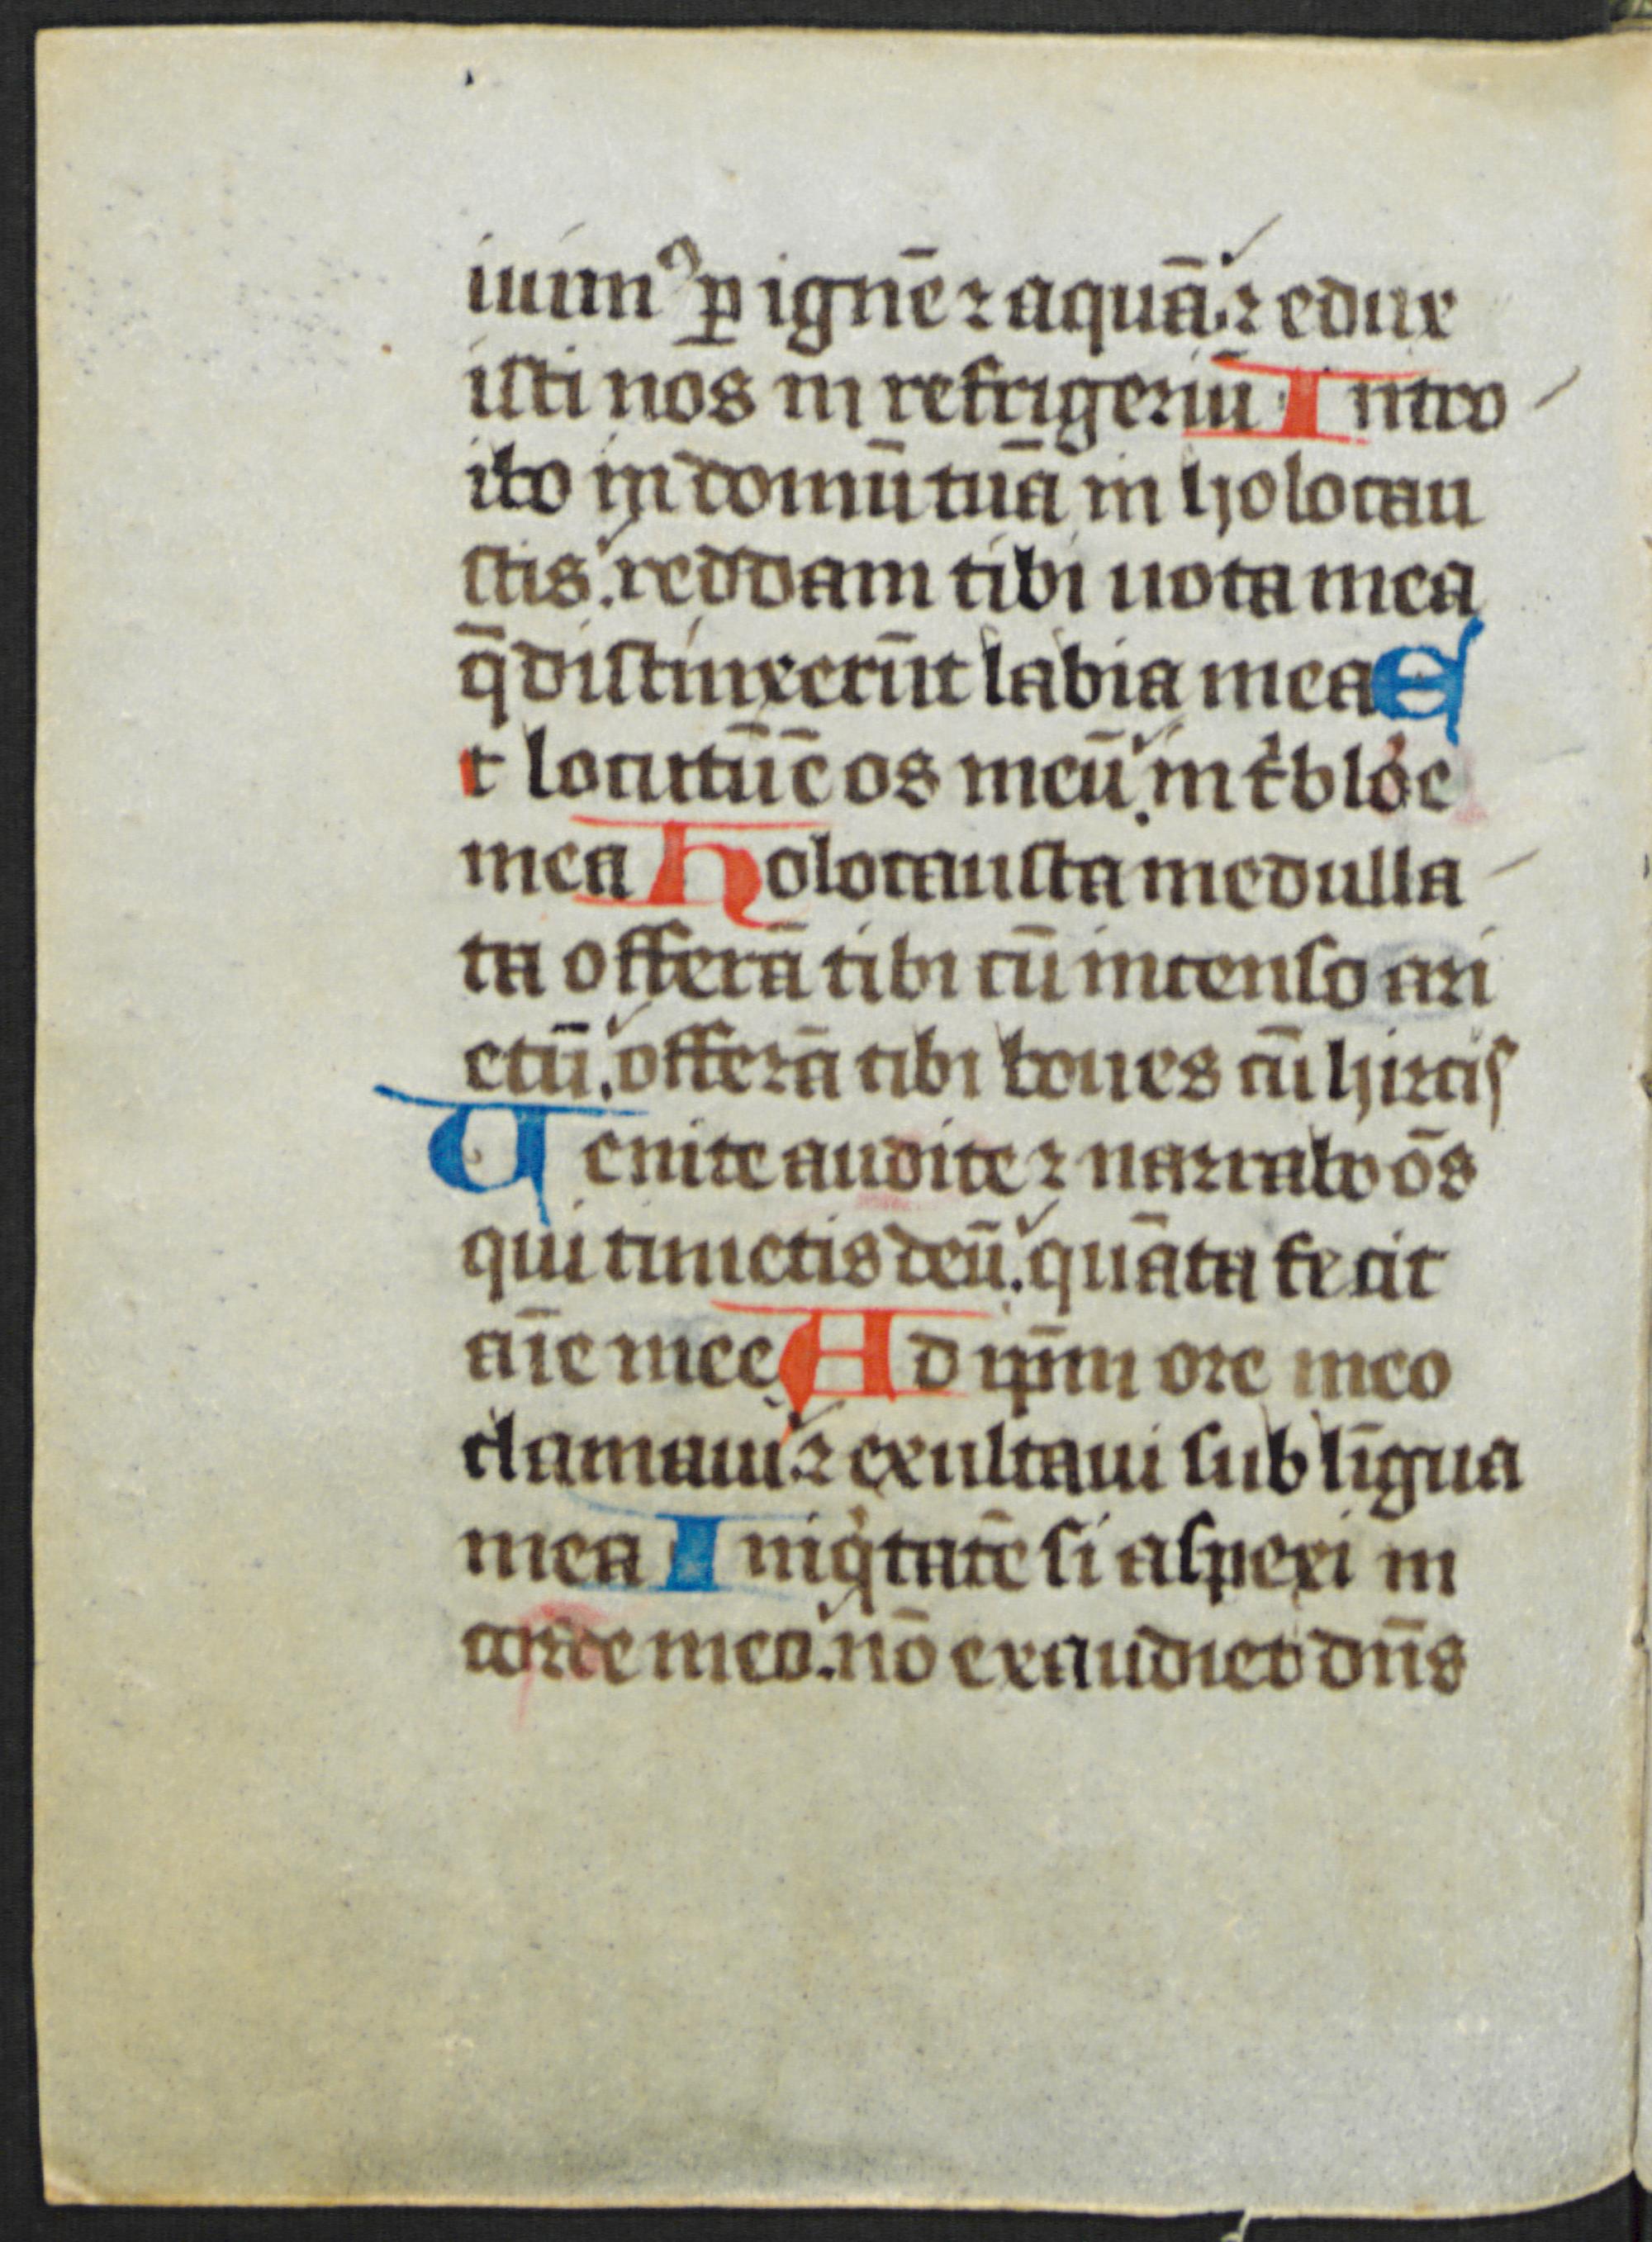 iuim⁹ ꝑ ignē ⁊ aquā. ⁊ edux
isti nos in refrigeriū Intro
ibo in domū tuā in holocau
stis. reddam tibi uota mea
q̄ distinxerūt labia mea E
t locutū ē os meū. in t̓bl̓oe
mea Holocausta medulla
ta offerā tibi cū incenso ari
etū. offerā tibi boues cū hircis
Uenite audite ⁊ narrabo ōs
qui timetis deū. quāta fecit
aīe mee Ad ip̄m ore meo
clamaui. ⁊ exultaui sub līgua
mea Iniq̓tatē si aspexi in
corde meo. nō exaudiet dn̄s